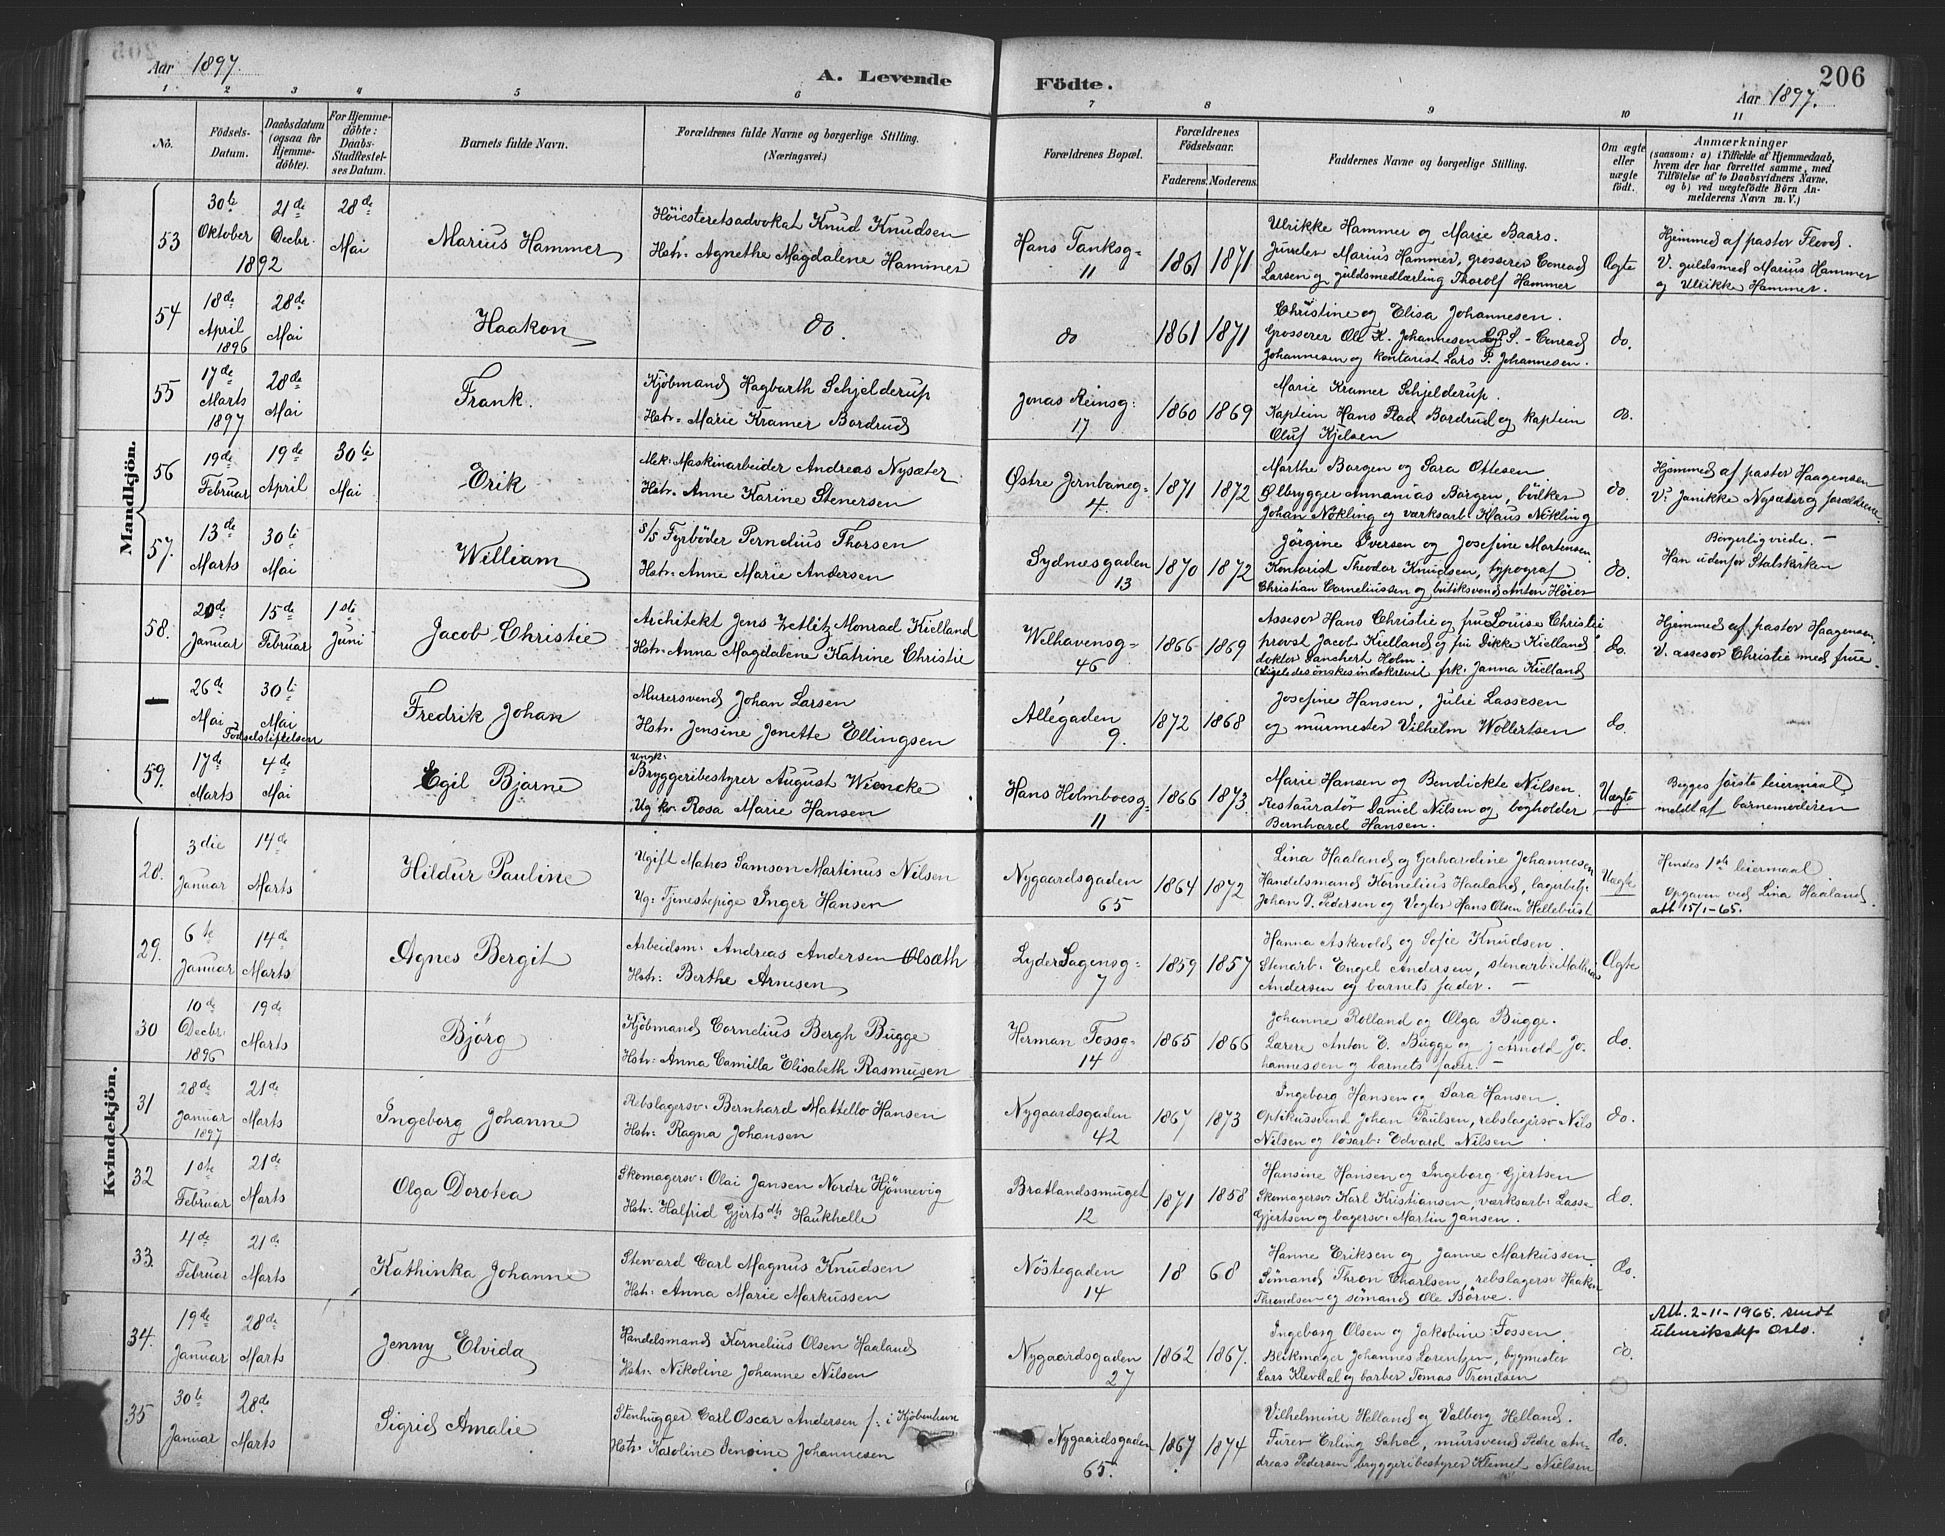 Aar 1897.
A. Levende Födte.
206
Aar 1897.
1 2 3 4 5 6 7 8 9 10 11
No.
Födsels-Datum.
Daabsdatum (ogsaa for Hjemme-döbte).
For Hjemme-döbte: Daabs-Stadfæstel-ses Datum.
Barnets fulde Navn.
Forældrenes fulde Navne og borgerlige Stilling.
(Næringsvei.)
Forældrenes Bopæl.
Forældrenes Födselsaar.
Faderens. Moderens.
Faddernes Navne og borgerlige Stilling.
Om ægte eller uægte födt.
Anmærkninger
(saasom: a) i Tilfælde af Hjemmedaab,
hvem der har forrettet samme, med
Tilföielse af to Daabsvidners Navne,
og b) ved uægtefödte Börn An-
melderens Navn m. V.)
Mandkjön.
53
30te Oktober 1892
21de Decbr.
28de Mai
Marius Hammer
Höiesteretsadvokat Knud Knudsen
Hstr: Agnethe Magdalene Hammer
Hans Tanksg: 11
1861 1871
Ulrikke Hammer og Marie Baars.
Juveler Marius Hammer, grosserer Conrad
Larsen og guldsmedlærling Thorolf Hammer
Ægte
Hjemmed af pastor Fleod.
V. guldsmed Marius Hammer
og Ulrikke Hammer.
54
18de April 1896
28de Mai
Haakon
do.
do
1861 1871
Christine og Elisa Johannesen.
Grosserer Ole K. Johannesen, Conrad
Johannesen og kontorist Lars P. Johannesen.
do.
55
17de Marts 1897
28de Mai
Frank.
Kjöbmand Hagbarth Schjelderup
Hstr: Marie Kramer Bordrud
Jonas Reinsg: 17
1860 1869
Marie Kramer Schjelderup.
Kaptein Hans Plad Bordrud og kaptein
Oluf Kjelsen
do.
56
19de Februar
19de April
30te Mai
Erik
Mek: Maskinarbeider Andreas Nysæter
Hstr: Anne Karine Stenersen
Østre Jernbaneg: 4.
1871 1872
Marthe Borgen og Sara Ottesen
Ølbrygger Annanias Borgen, bölker
Johan Nökling og værksarb: Klaus Nökling
do.
Hjemmed af pastor Haagensen
V: Janikke Nysæter og forældrene.
57.
13de Marts
30te Mai
William
S/S Fyrböder Pernelius Thorsen
Hstr: Anne Marie Andersen
Sydnesgaden 13
1870 1872
Jörgine Iversen og Josefine Martensen
Kontorist Theodor Knudsen, typograf
Christian Corneliussen og butiksvend Anton Höier
do.
Borgerlig viede. —
Han udenfor Statskirken
58.
20de Januar
15de Februar
1ste Juni
Jacob Christie
Architekt Jens Zetlitz Monrad Kielland
Hstr: Anna Magdalene Katrine Christie
Welhavensg: 46
1866 1869
Assesor Hans Christie og fru Louise Christie
provst Jacob Kielland og fru Dikke Kielland
doktor Danchert Holm.
(Ligeledes önskes indskrevet frk. Janna Kielland
do.
Hjemmed af pastor Haagensen
V. assesor Christie med frue
—
26de Mai
30te Mai
Födselstiftelsen
Fredrik Johan
Murersvend Johan Larsen
Hstr. Jensine Jonette Ellingsen
Allégaden 9.
1872 1868
Josefine Hansen, Julie Lassesen
og murmester Vilhelm Wollertsen
do.
59.
17de Marts
4de Mai
Egil Bjarne
Ungk: Bryggeribestyrer August Wiencke
Ug kv: Rosa Marie Hansen
Hans Holmboesg: 11
1866 1873.
Marie Hansen og Bendickte Nilsen.
Restauratör Daniel Nilsen og bogholder
Bernhard Hansen.
Uægte
Begges förste leiermaal
meldt af barnemoderen
Kvindekjön.
28.
3die Januar
14de Marts
Hildur Pauline
Ugift Matros Samson Martinus Nilsen
Ug: Tjenestepige Inger Hansen
Nygaardsgaden 65
1864 1872
Lina Haaland og Gerhardine Johannesen
Handelsmand Kornelius Haaland, lagerbetj:
Johan J. Pedersen og Vegter Hans Olsen Hellebust
Uægte
Hendes 1ste leiermaal
Opgaven ved Lina Haaland.
att 15/1-65.
29.
6te Januar
14de Marts
Agnes Bergit
Arbeidsm: Andreas Andersen Olsæth
Hstr: Berthe Arnesen
Lyder Sagensg: 7
1859 1857
Hanna Askevold og Sofie Knudsen.
Stenarb: Engel Andersen, stenarb: Mathias
Andersen og barnets fader. —
Ægte
30
10de Decbr: 1896
19de Marts
Bjørg
Kjöbmand Cornelius Bergh Bugge
Hstr: Anna Camilla Elisabeth Rasmusen
Herman Fossg: 14
1865 1866
Johanne Rolland og Olga Bugge.
Lærere Anton E. Bugge og J Arnold Jo-
hannessen og barnets fader. —
do.
31
28de Januar 1897
21de Marts
Ingeborg Johanne
Rebslagersv: Bernhard Mattello Hansen
Hstr: Ragna Johansen
Nygaardsgaden 42
1867 1873
Ingeborg Hansen og Sara Hansen.
Optikussvend Johan Paulsen, rebslagersv Nils
Nilsen og løsarb: Edvard Nilsen
do.
32
1ste Februar
21de Marts
Olga Dorotea
Skomagersv: Olai Jansen Nordre Hjönnevig
Hstr: Halfrid Gjertsdtr Haukhelle
Bratlandssmuget 12
1871 1858
Hansine Hansen og Ingeborg Gjertsen
Skomagersv: Karl Kristiansen, værksarb: Lasse
Gjertsen og bagersv: Martin Jansen.
do.
33.
4de Februar
21de Marts
Kathinka Johanne
Steward Carl Magnus Knudsen
Hstr: Anna Marie Markussen
Nöstegaden 14
18 68
Hanne Eriksen og Janne Markussen.
Sömand Thron Charlsen, rebslagersv Haakon
Throndsen og sömand Ole Börve.
do.
34.
19de Januar
28de Marts
Jenny Elvida
Handelsmand Kornelius Olsen Haaland
Hstr: Nikoline Johanne Nilsen
Nygaardsgaden 27
1862 1867.
Ingeborg Olsen og Jakobine Fossen.
Blikmager Johannes Lorentzen, bygmester
Lars Klevdal og barber Tomas Trondsen
do.
Att. 2-11-1965. sendt
Utenriksdep Oslo.
35
30te Januar
28de Marts
Sigrid Amalie
Stenhugger Carl Oscar Andersen f: i Kjöbenhavn
Hstr: Karoline Jensine Johannesen
Nygaardsgaden 65.
1867 1874
Vilhelmine Helland og Valborg Helland.
Furer Erling Schel, mursvend Pedre An-
dreas Pedersen bryggeribestyrer Klemet Nielsen
do.